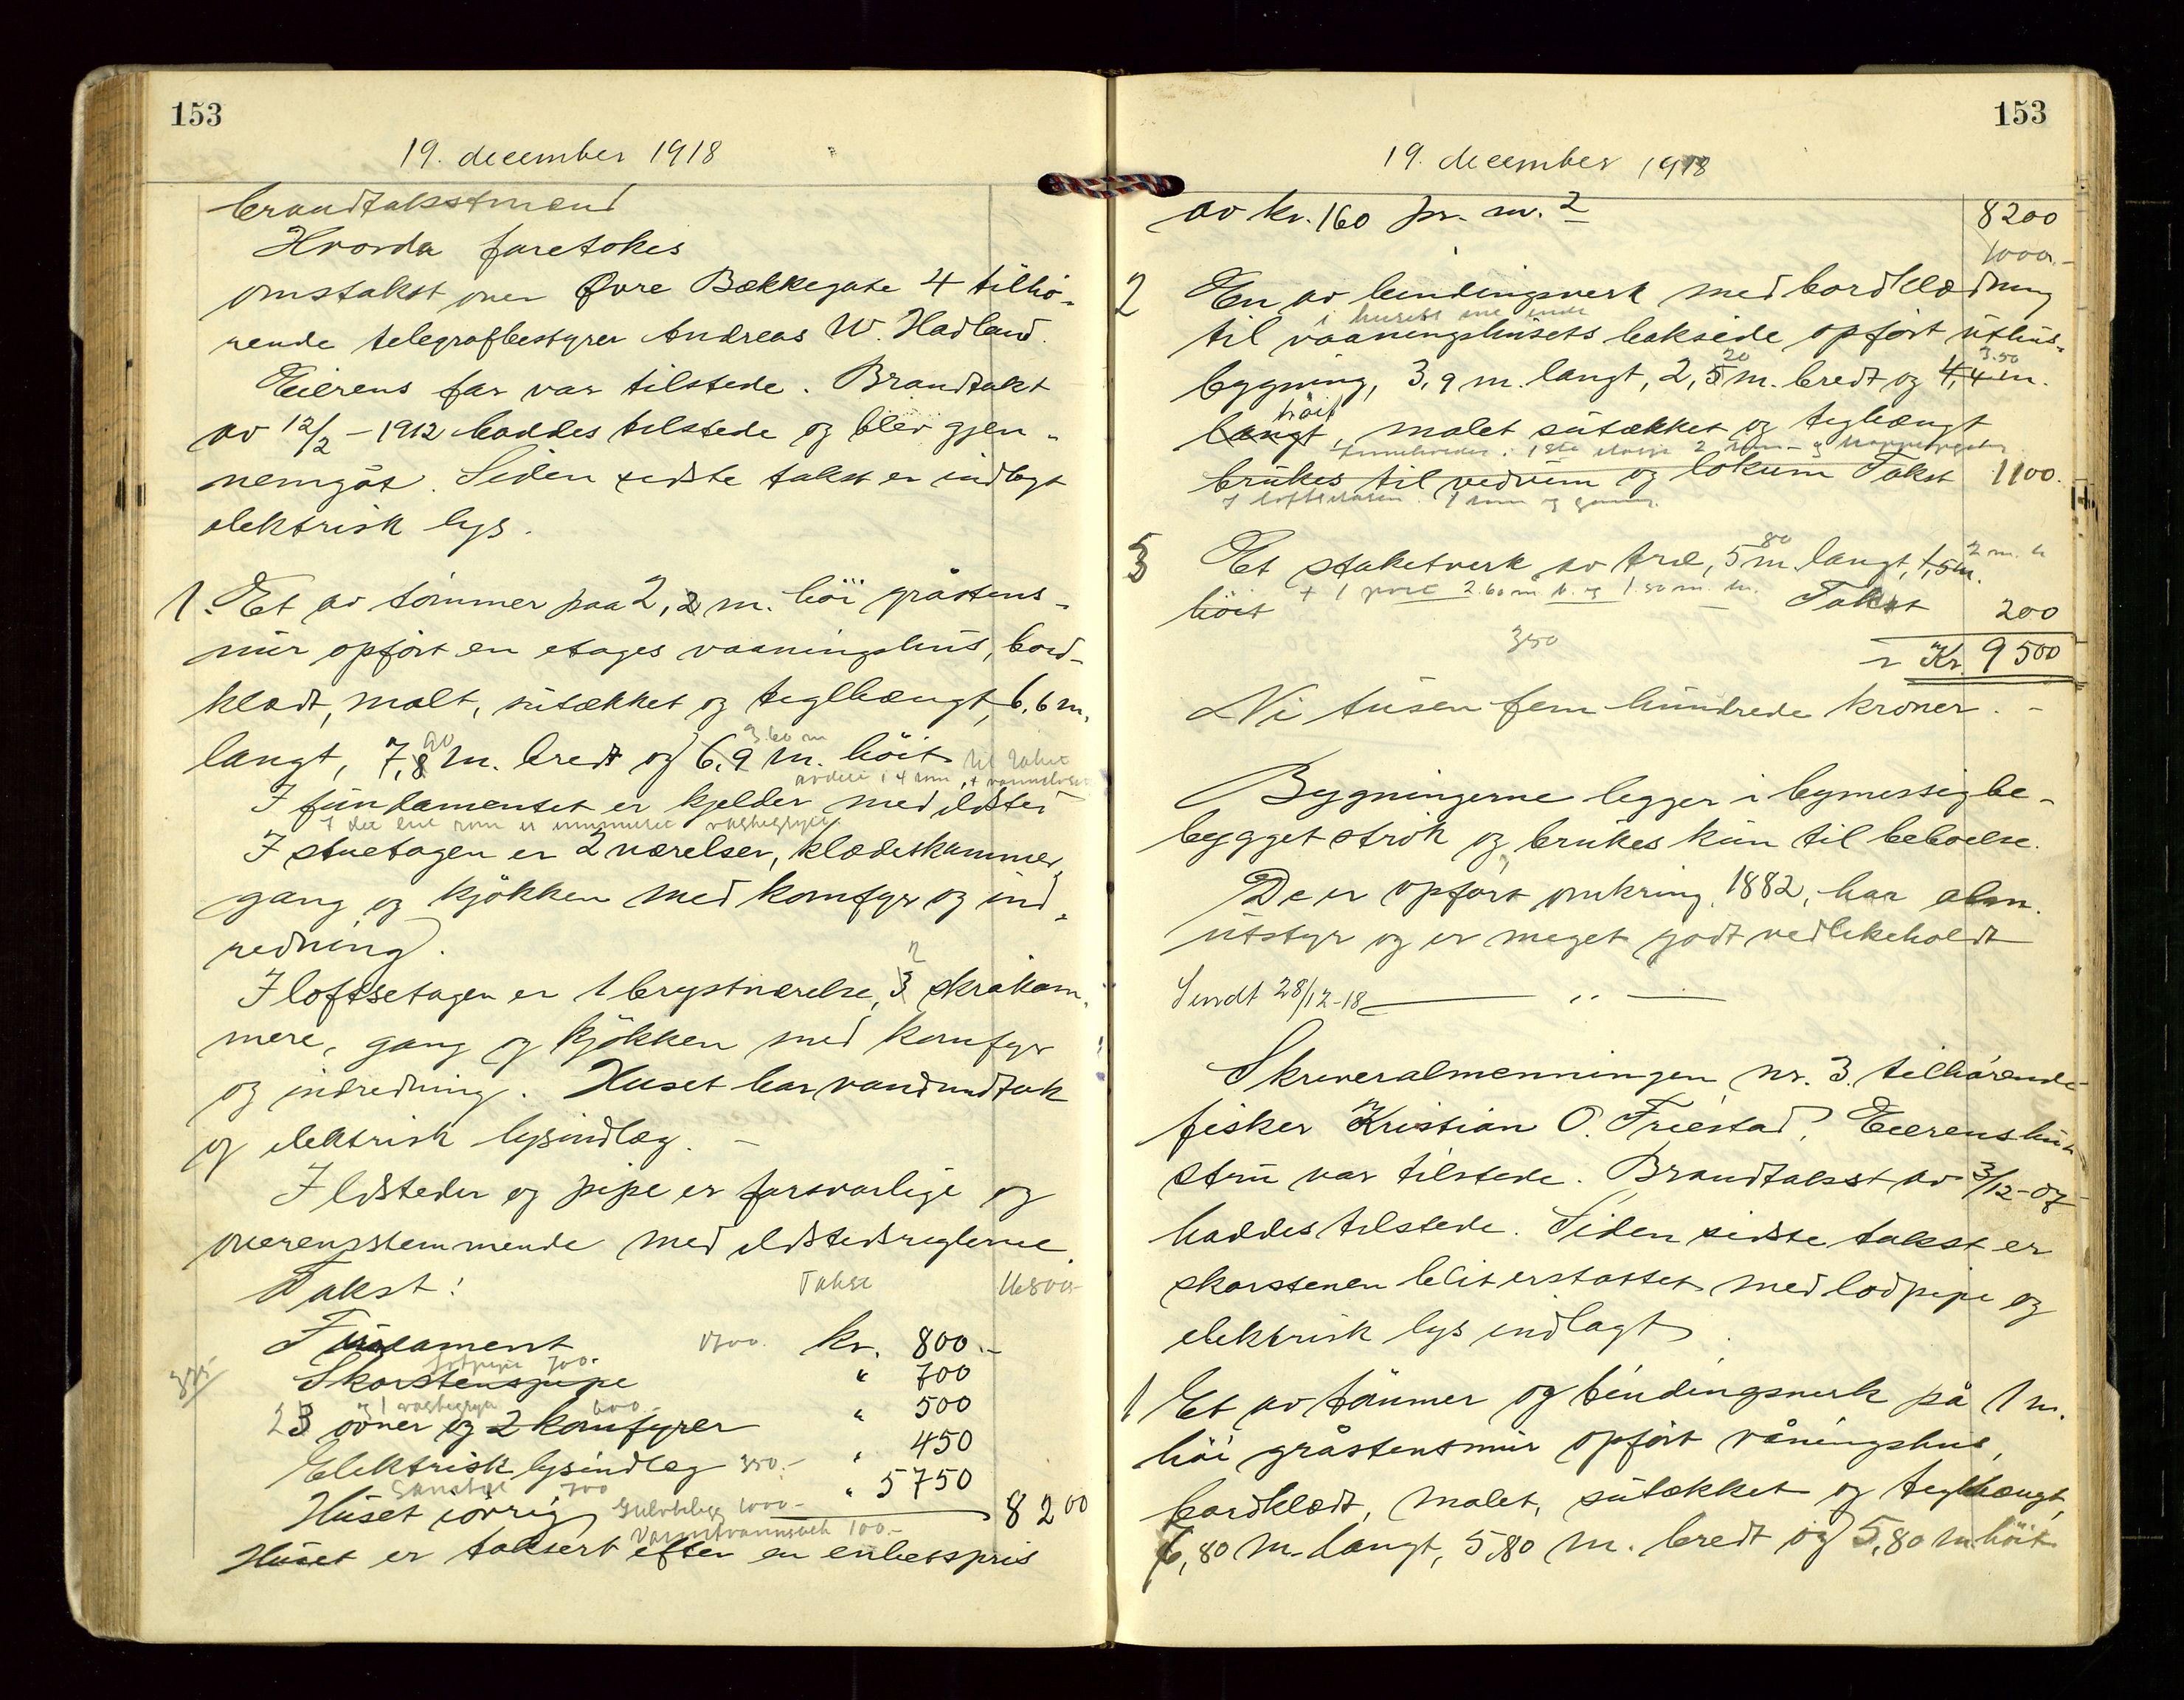 153
19. december 1918
brandtakstmænd
Hvorda foretokes
omstakst over Øvre Bækkegate 4 tilhö-
rende telegrafbestyrer Andreas W. Hadland.
Eierens far var tilstede. Brandtakst
av 12/2 - 1912 haddes tilstede og blev gjen-
nemgåt. Siden sidste takst er indlagt
elektrisk lys.
1. Et av tömmer paa 2,2 m. höi gråstens-
mur opfört en etages vaaningshus, bord-
klædt, malt, sutækket og teglhængt, 6,6 m.
90 3.60 m
langt, 7,8 m. bredt og 6,9 m. höit til rahet
avdelt i 4 rom, +
I fundamentet er kjelder med ildsted
I det ene rom er innmuret vaskegryte
I stuetagen er 2 værelser, klædeskammer,
gang og kjökken med komfyr og ind-
redning.
2
I loftsetagen er 1 brystværelse, 3 skråkam-
mere, gang og kjökken med komfyr
og indredning. Huset har vandundtak
og elektrisk lysindlæg. -
Ildsteder og pipe er forsvarlige og
overensstemmende med ildstedsreglerne
Takst: Takst 16800-
Fundament 1700. kr. 800.-
Lodpipe 700.-
Skorstenspipe " 700
og 1 vaskegryte 600.-
23 ovner og 2 komfyrer " 500
Elektrisk lysindlæg 350.- " 450
Sanitær 700
Huset iövrig " 5750
Gulvbelegg 1000.- 8200
Varmtvannstank 100.-
Huset er taksert efter en enhetspris
153
19. december 1918
av kr. 160 pr. m.2 8200
1000.-
2 En av bindingsverk med bordklædning
i husets ene ende
til vaaningshusets bakside opfört uthus-
20 3.50
bygning, 3,9 m. langt, 2,5 m. bredt og 4,4 m.
höit
langt, malet sutækket og teglhængt
Inneholder: 1ste etasje 2 rom - og trappegang
brukes til vedrum og lokum Takst 1100.
I loftsetasjen 1 rom og gang.
80 2 m. h
3 Et staketverk av træ, 5 m. langt, 1,5 m.
+ 1 port 2.60 m. b. og 1.50 m. h.
höit - Takst 200
350
Kr. 9500
Ni tusen fem hundrede kroner. -
Bygningerne legger i bymessig be-
bygget strök og brukes kun til beboelse.
De er opfört omkring 1882, har alm.
utstyr og er meget godt vedlikeholdt
Sendt 28/12-18 ,,
Skeveralmenningen nr. 3. tilhörende
fisker Kristian O. Friestad. Eierens hu-
stru var tilstede. Brandtakst av 3/12-07
haddes tilstede. Siden sidste takst er
skorstenen blit erstattet med lodpipe og
elektrisk lys indlagt
1 Et av tömmer og bindingsverk på 1 m.
höi gråstensmur opfört våningshus,
bordklædt, malet, sutækket og teglhængt,
6,80 m. langt, 5,80 m. bredt og 5,80 m höit